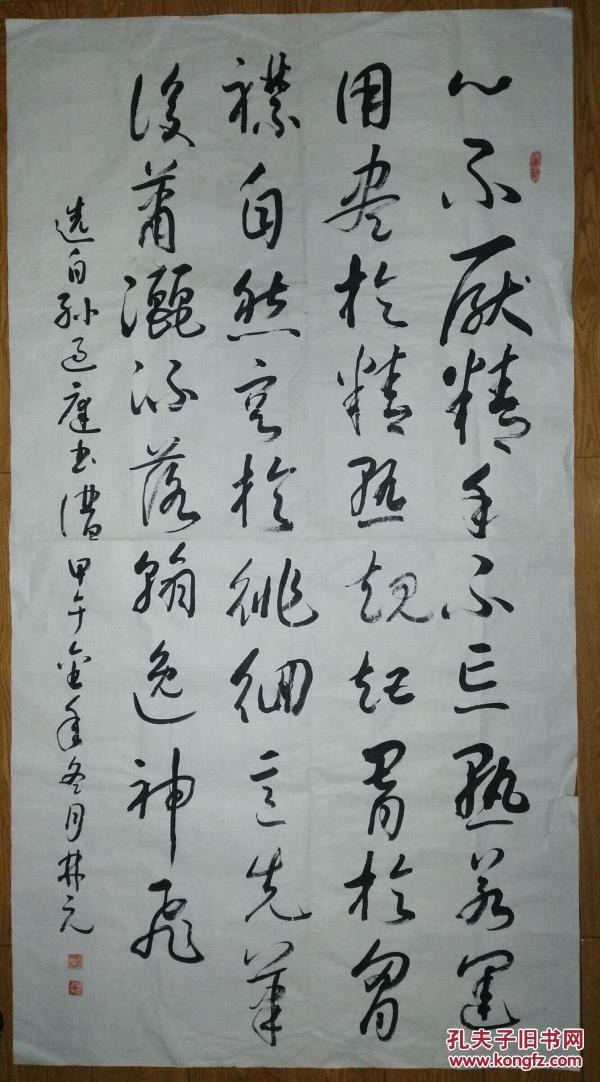 心不厭精手不忘熟若運
用盡於精熟規矩闇於胸
襟自然容於徘徊意先筆
後蕭灑流落翰逸神飛
选自孙过庭书谱甲午金年冬月林元
孔夫子旧书网
www.kongfz.com